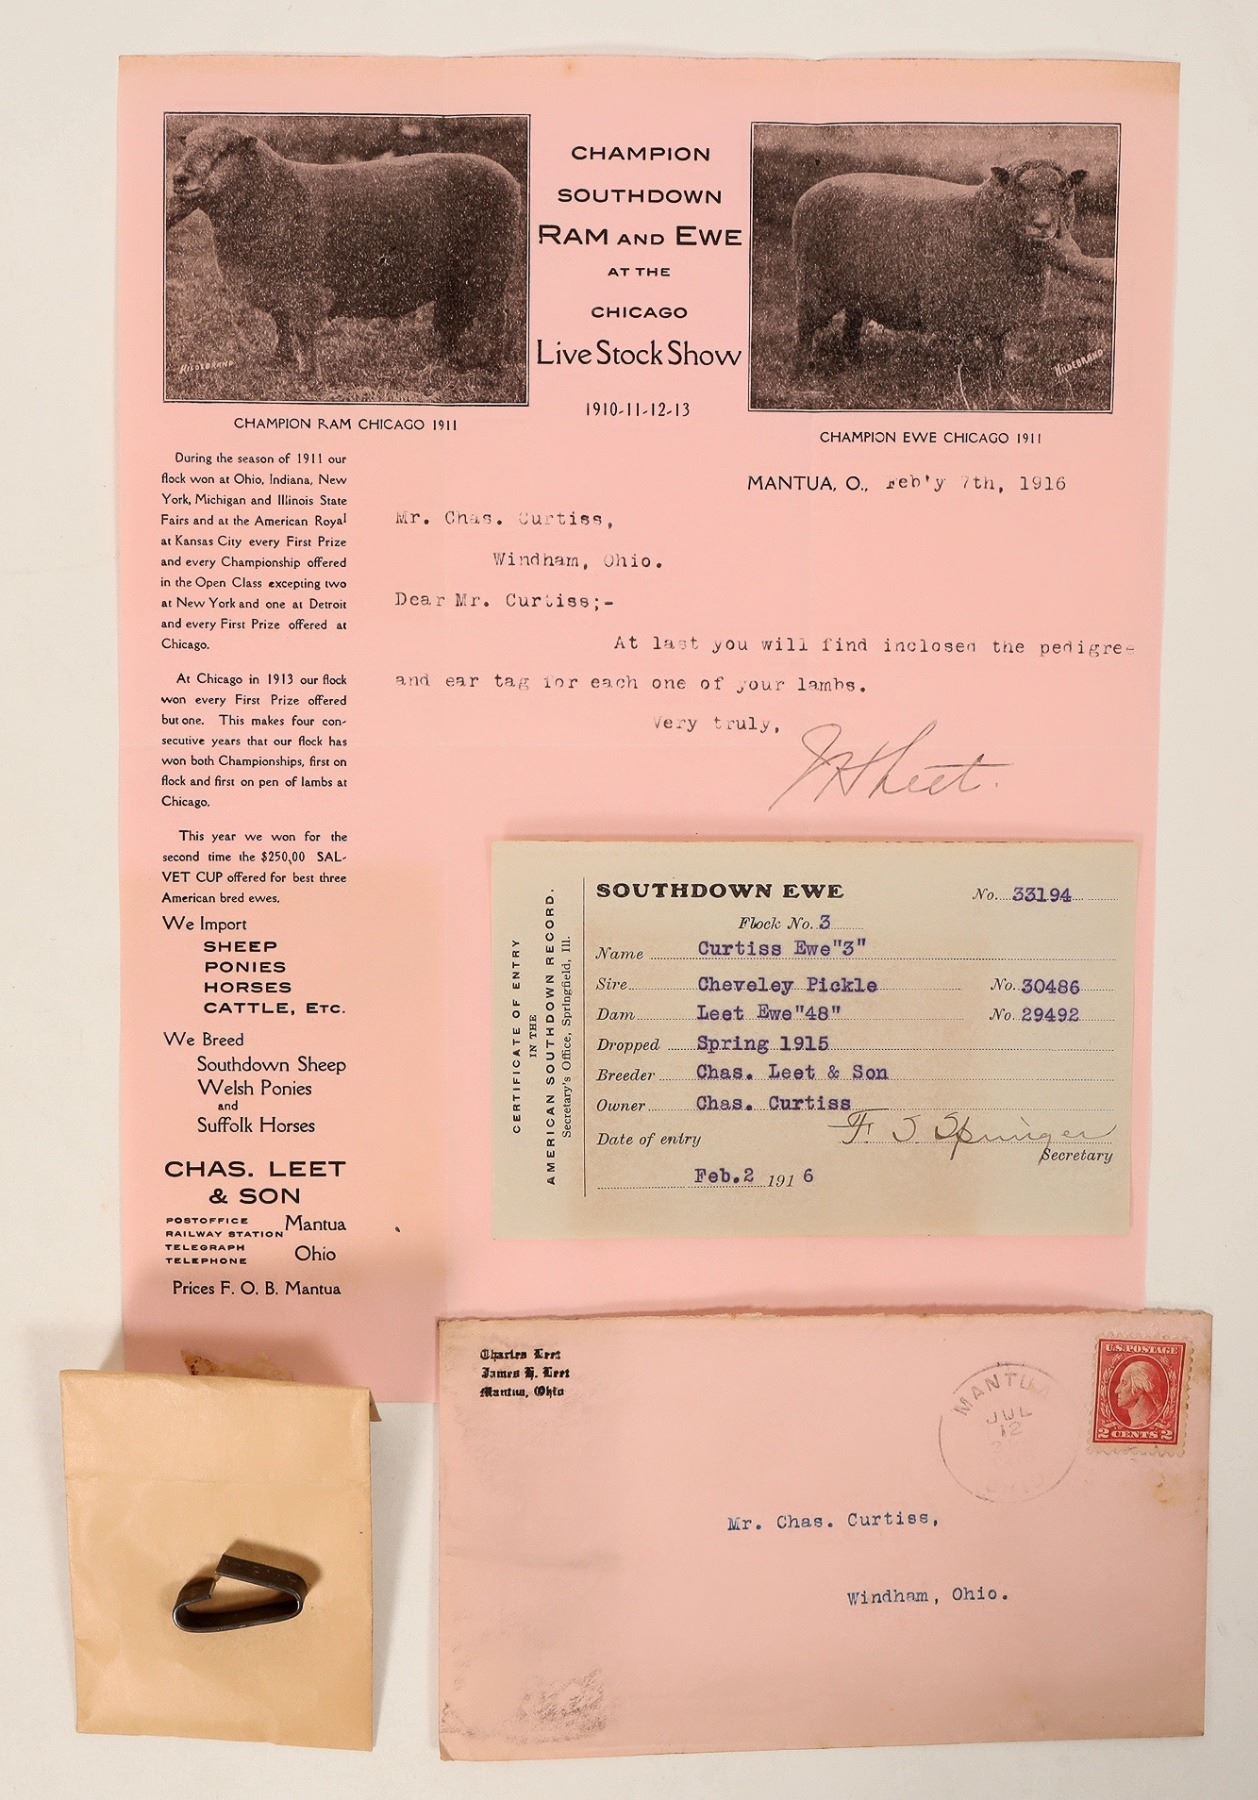 CHAMPION
SOUTHDOWN
RAM AND EWE
AT THE
CHICAGO
Live Stock Show
1910-11-12-13
HILDEBRAND
HILDEBRAND
CHAMPION RAM CHICAGO 1911
CHAMPION EWE CHICAGO 1911
During the season of 1911 our
flock won at Ohio, Indiana, New
York, Michigan and Illinois State
Fairs and at the American Royal
at Kansas City every First Prize
and every Championship offered
in the Open Class excepting two
at New York and one at Detroit
and every First Prize offered at
Chicago.
At Chicago in 1913 our flock
won every First Prize offered
but one. This makes four con-
secutive years that our flock has
won both Championships, first on
flock and first on pen of lambs at
Chicago.
This year we won for the
second time the $250.00 SAL-
VET CUP offered for best three
American bred ewes.
We Import
SHEEP
PONIES
HORSES
CATTLE, ETC.
We Breed
Southdown Sheep
Welsh Ponies
and
Suffolk Horses
CHAS. LEET
& SON
POSTOFFICE
RAILWAY STATION
TELEGRAPH
TELEPHONE
Mantua
Ohio
Prices F. O. B. Mantua
MANTUA, O., Feb'y 7th, 1916
Mr. Chas. Curtiss,
Windham, Ohio.
Dear Mr. Curtiss;-
At last you will find inclosed the pedigree
and ear tag for each one of your lambs.
Very truly,
J H Leet.
CERTIFICATE OF ENTRY
IN THE
AMERICAN SOUTHDOWN RECORD.
Secretary's Office, Springfield, Ill.
SOUTHDOWN EWE No. 33194
Flock No. 3
Name Curtiss Ewe"3"
Sire Cheveley Pickle No. 30486
Dam Leet Ewe"48" No. 29492
Dropped Spring 1915
Breeder Chas. Leet & Son
Owner Chas. Curtiss
Date of entry F. J. Springer
Secretary
Feb.2 1916
Charles Leet
James H. Leet
Mantua, Ohio
MANTUA
JUL
12
OHIO
U.S. POSTAGE
2 CENTS 2
Mr. Chas. Curtiss,
Windham, Ohio.